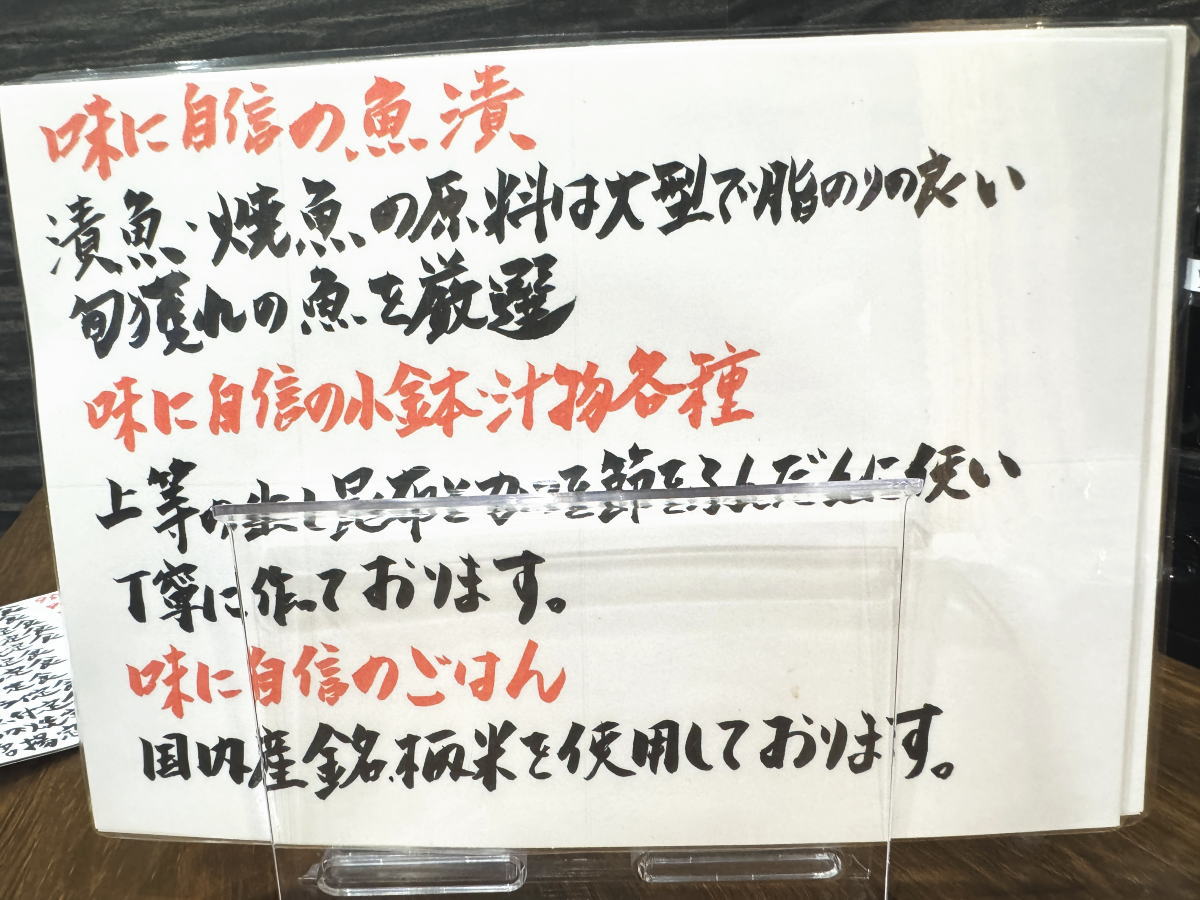 味に自信の魚漬
漬魚・焼魚の原料は大型で脂のりの良い
旬獲れの魚を厳選
味に自信の小鉢・汁物各種
上等の出し昆布とかつを節をふんだんに使い
丁寧に作っております。
味に自信のごはん
国内産銘柄米を使用しております。